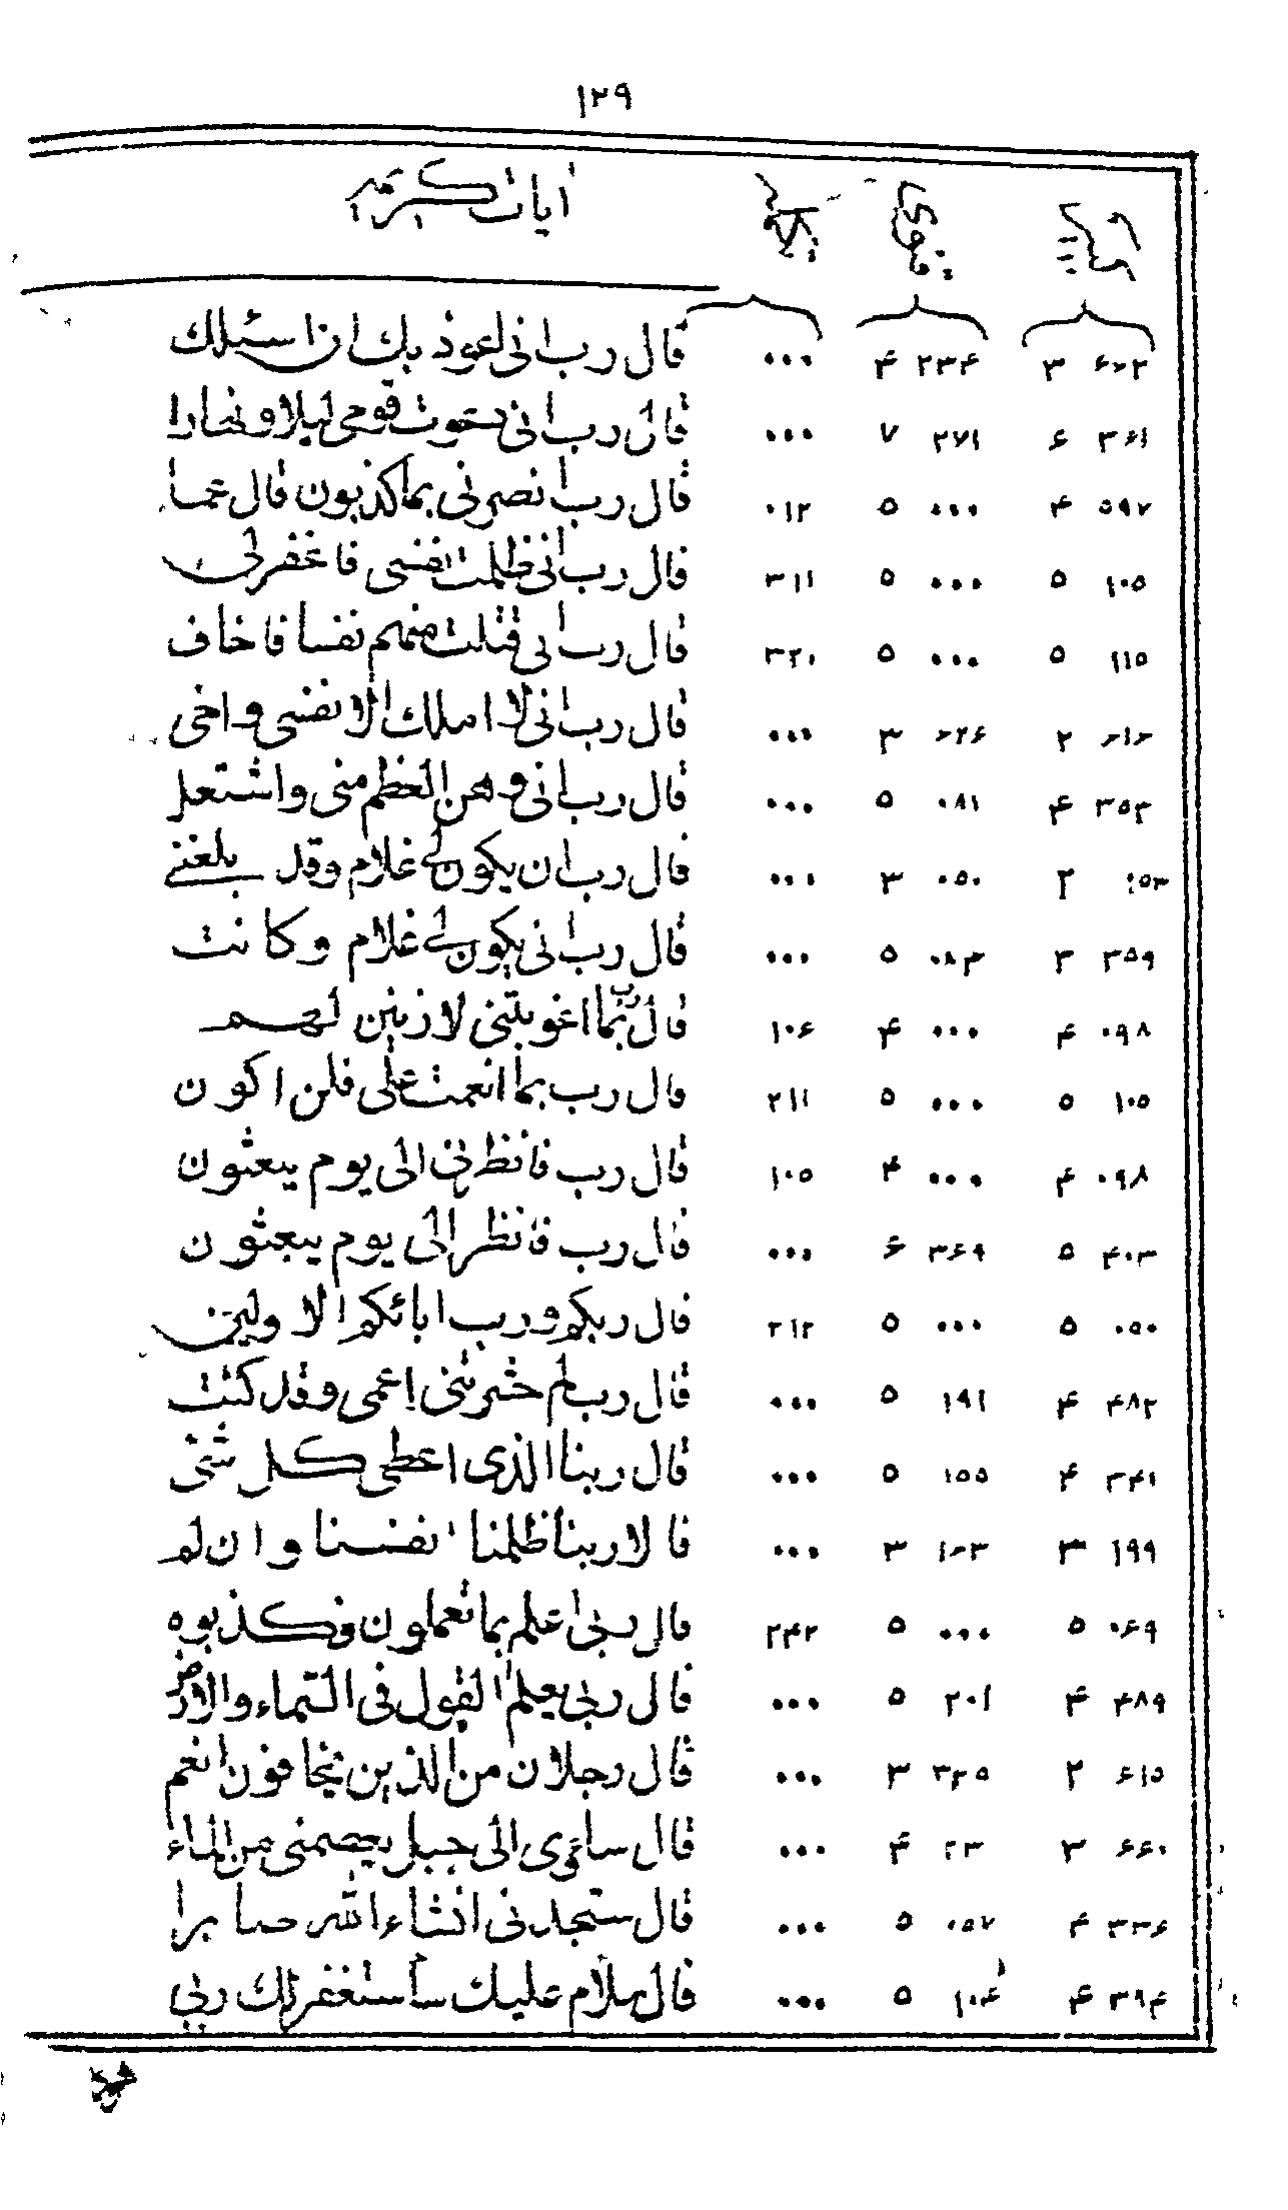 ۱۲۹
ایات کریمه
۶۲۲ ۳ ۲۳۴ ۴ ۰۰۰ قال رب انی اعوذ بك ان اسئلك
۳۶۱ ۶ ۲۷۱ ۷ ۰۰۰ قال رب انی دعوت قومی لیلا و نهارا
۵۹۷ ۴ ۰۰۰ ۵ ۰۱۲ قال رب انصرنی بما کذبون قال عما
۱۰۵ ۵ ۰۰۰ ۵ ۳۱۱ قال رب انی ظلمت نفسی فاغفرلی
۱۱۵ ۵ ۰۰۰ ۵ ۳۲۰ قال رب انی قتلت منهم نفسا فاخاف
۲ ۳ ۰۰۰ قال رب انی لا املك الا نفسی و اخی
۳۵۳ ۴ ۰۸۱ ۵ ۰۰۰ قال رب انی وهن العظم منی و اشتعل
۱۵۳ ۲ ۰۵۰ ۳ ۰۰۰ قال رب ان یکون لی غلام وقد بلغنی
۳۵۹ ۳ ۰۸۳ ۵ ۰۰۰ قال رب انی یکون لی غلام وکانت
۰۹۸ ۴ ۰۰۰ ۴ ۱۰۶ قال رب بما اغویتنی لازینن لهم
۱۰۵ ۵ ۰۰۰ ۵ ۲۱۱ قال رب بما انعمت علی فلن اکون
۰۹۸ ۴ ۰۰۰ ۴ ۱۰۵ قال رب فانظرنی الی یوم یبعثون
۴۰۳ ۵ ۳۶۹ ۶ ۰۰۰ قال رب فانظر الی یوم یبعثون
۰۵۰ ۵ ۰۰۰ ۵ ۲۱۲ قال ربکم و رب ابائکم الاولین
۴۸۲ ۴ ۱۹۱ ۵ ۰۰۰ قال رب لم حشرتنی اعمی وقد کنت
۳۴۱ ۴ ۱۵۵ ۵ ۰۰۰ قال ربنا الذی اعطی کل شئ
۱۹۹ ۳ ۱۲۳ ۳ ۰۰۰ قالا ربنا ظلمنا انفسنا و ان لم
۰۶۹ ۵ ۰۰۰ ۵ ۲۴۲ قال ربی اعلم بما تعملون فکذبوه
۴۸۹ ۴ ۲۰۱ ۵ ۰۰۰ قال ربی یعلم القول فی السماء والارض
۶۱۵ ۲ ۲۲۵ ۳ ۰۰۰ قال رجلان من الذین یخافون انعم
۶۶۰ ۳ ۲۳ ۴ ۰۰۰ قال ساوی الی جبل یعصمنی من الماء
۳۳۶ ۴ ۰۵۷ ۵ ۰۰۰ قال ستجدنی انشاء الله صابرا
۳۹۴ ۴ ۱۰۴ ۵ ۰۰۰ قال سلام علیك ساستغفر لك ربی